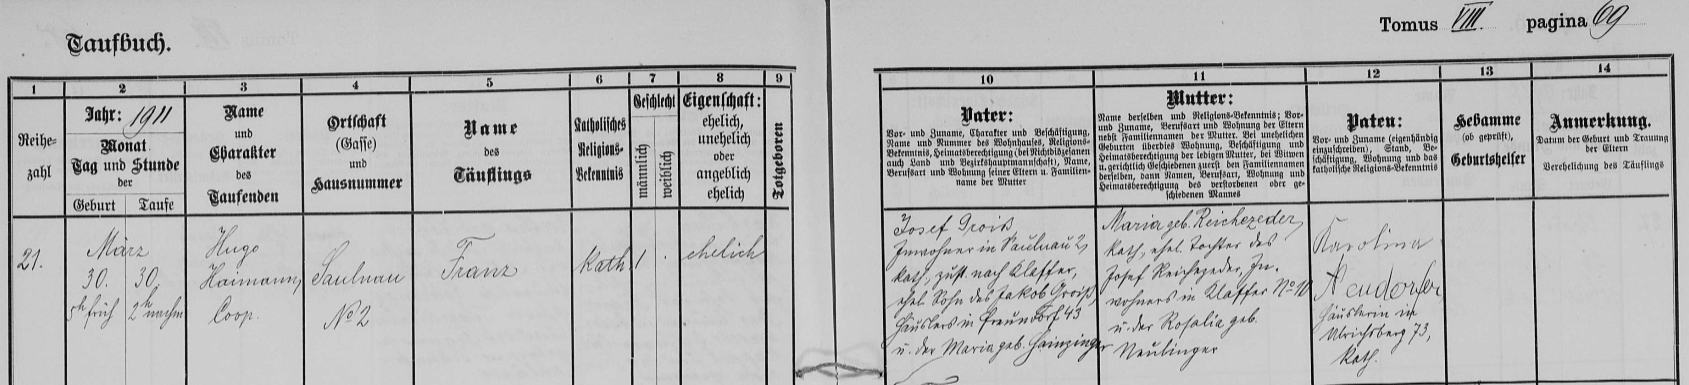 Taufbuch.
Tomus VIII. pagina 69
1
2
3
4
5
6
7
8
9
10
11
12
13
14
Reihe-
zahl
Jahr: 1911
Monat
Tag und Stunde
der
Geburt
Taufe
Name
und
Charakter
des
Taufenden
Ortschaft
(Gasse)
und
Hausnummer
Name
des
Täuflings
Katholisches
Religions-
Bekenntnis
Geschlecht
männlich
weiblich
Eigenschaft:
ehelich,
unehelich
oder
angeblich
ehelich
Totgeboren
Vater:
Vor- und Zuname, Charakter und Beschäftigung,
Name und Nummer des Wohnhauses, Religions-
Bekenntnis, Heimatsberechtigung (bei Nichtdiözesanen
auch Land und Bezirkshauptmannschaft), Name,
Berufsart und Wohnung seiner Eltern u. Familien-
name der Mutter
Mutter:
Name derselben und Religions-Bekenntnis; Vor-
und Zuname, Berufsart und Wohnung der Eltern
nebst Familiennamen der Mutter. Bei unehelichen
Geburten überdies Wohnung, Beschäftigung und
Heimatsberechtigung der ledigen Mutter, bei Witwen
u. gerichtlich Geschiedenen zuerst den Familiennamen
derselben, dann Namen, Berufsart, Wohnung und
Heimatsberechtigung des verstorbenen oder ge-
schiedenen Mannes
Paten:
Vor- und Zuname (eigenhändig
einzuschreiben), Stand, Be-
schäftigung, Wohnung und das
katholische Religions-Bekenntnis
Hebamme
(ob geprüft),
Geburtshelfer
Anmerkung.
Datum der Geburt und Trauung
der Eltern
Verehelichung des Täuflings
21.
März
30. 30.
5h früh 2h nachm
Hugo
Haimann,
Coop.
Saulnau
No 2
Franz
kath.
1 .
ehelich
Josef Groiß,
Inwohner in Saulnau 2,
kath., zust. nach Klaffer,
ehel. Sohn des Jakob Groiß,
Häuslers in Freundorf 43
u. der Maria geb. Hainzinger
Maria geb. Reichezeder,
kath., ehel. Tochter des
Josef Reichezeder, In-
wohners in Klaffer No 11
u. der Rosalia geb.
Neulinger
Karolina
Neudorfer
Häuslerin in
Ulrichsberg 73,
kath.